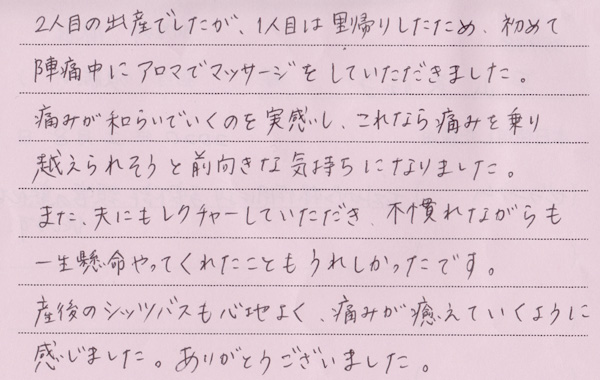 2人目の出産でしたが、1人目は里帰りしたため、初めて
陣痛中にアロマでマッサージをしていただきました。
痛みが和らいでいくのを実感し、これなら痛みを乗り
越えられそうと前向きな気持ちになりました。
また、夫にもレクチャーしていただき、不慣れながらも
一生懸命やってくれたこともうれしかったです。
産後のシッツバスも心地よく、痛みが癒えていくように
感じました。ありがとうございました。